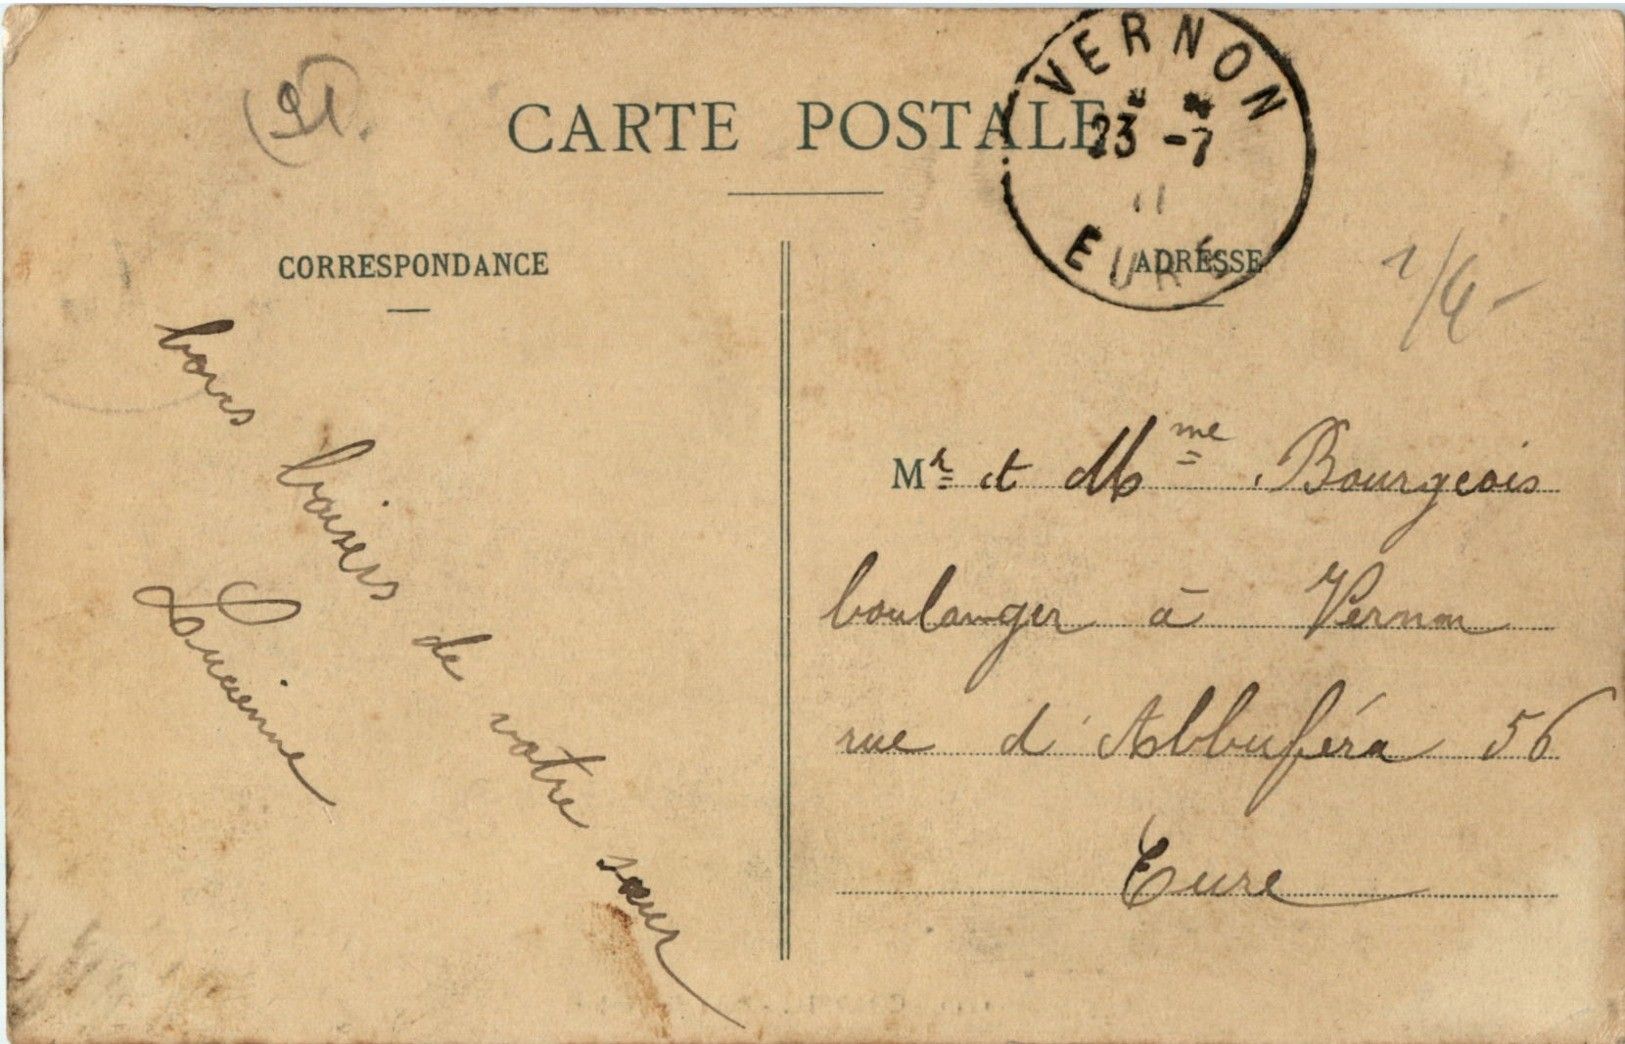 91
CARTE POSTALE
VERNON
23 -7
11
EURE
CORRESPONDANCE
ADRESSE
bons baisers de votre sœur
Mr et Mme Bourgeois
boulanger à Vernon
rue d'Albuféra 56
Eure